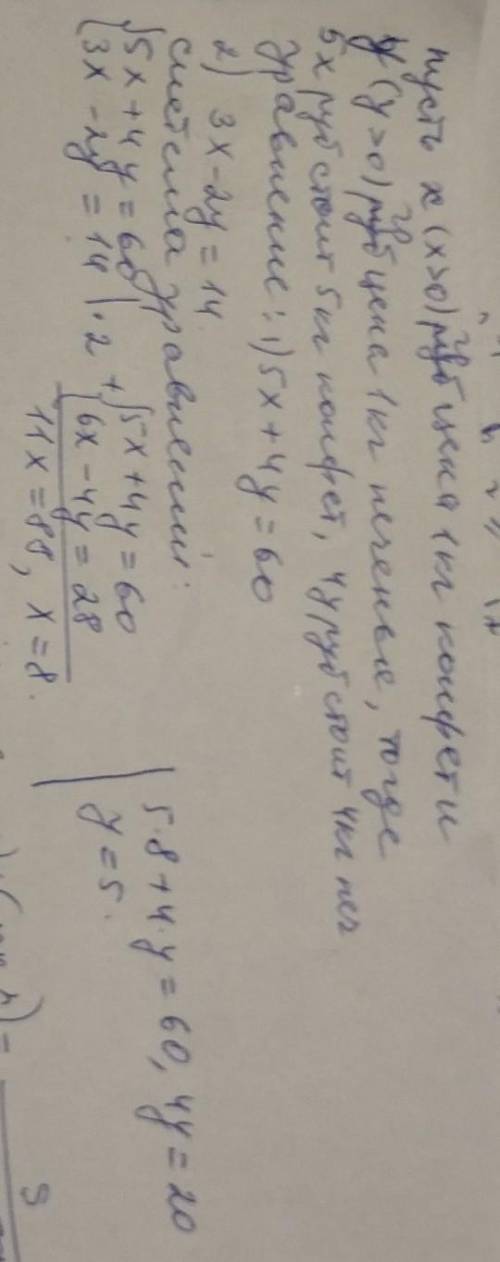 пусть x (x>0) цена 1кг конфет и
y (y>0) цена 1кг печенья, тогда
5x руб стоит 5кг конфет, 4y руб стоит 4кг печ
Уравнение: 1) 5x + 4y = 60
2) 3x - 2y = 14
система уравнений:
{5x + 4y = 60
{3x - 2y = 14 | · 2
+ {5x + 4y = 60
{6x - 4y = 28
11x = 88, x = 8.
5·8 + 4·y = 60, 4y = 20
y = 5.
9